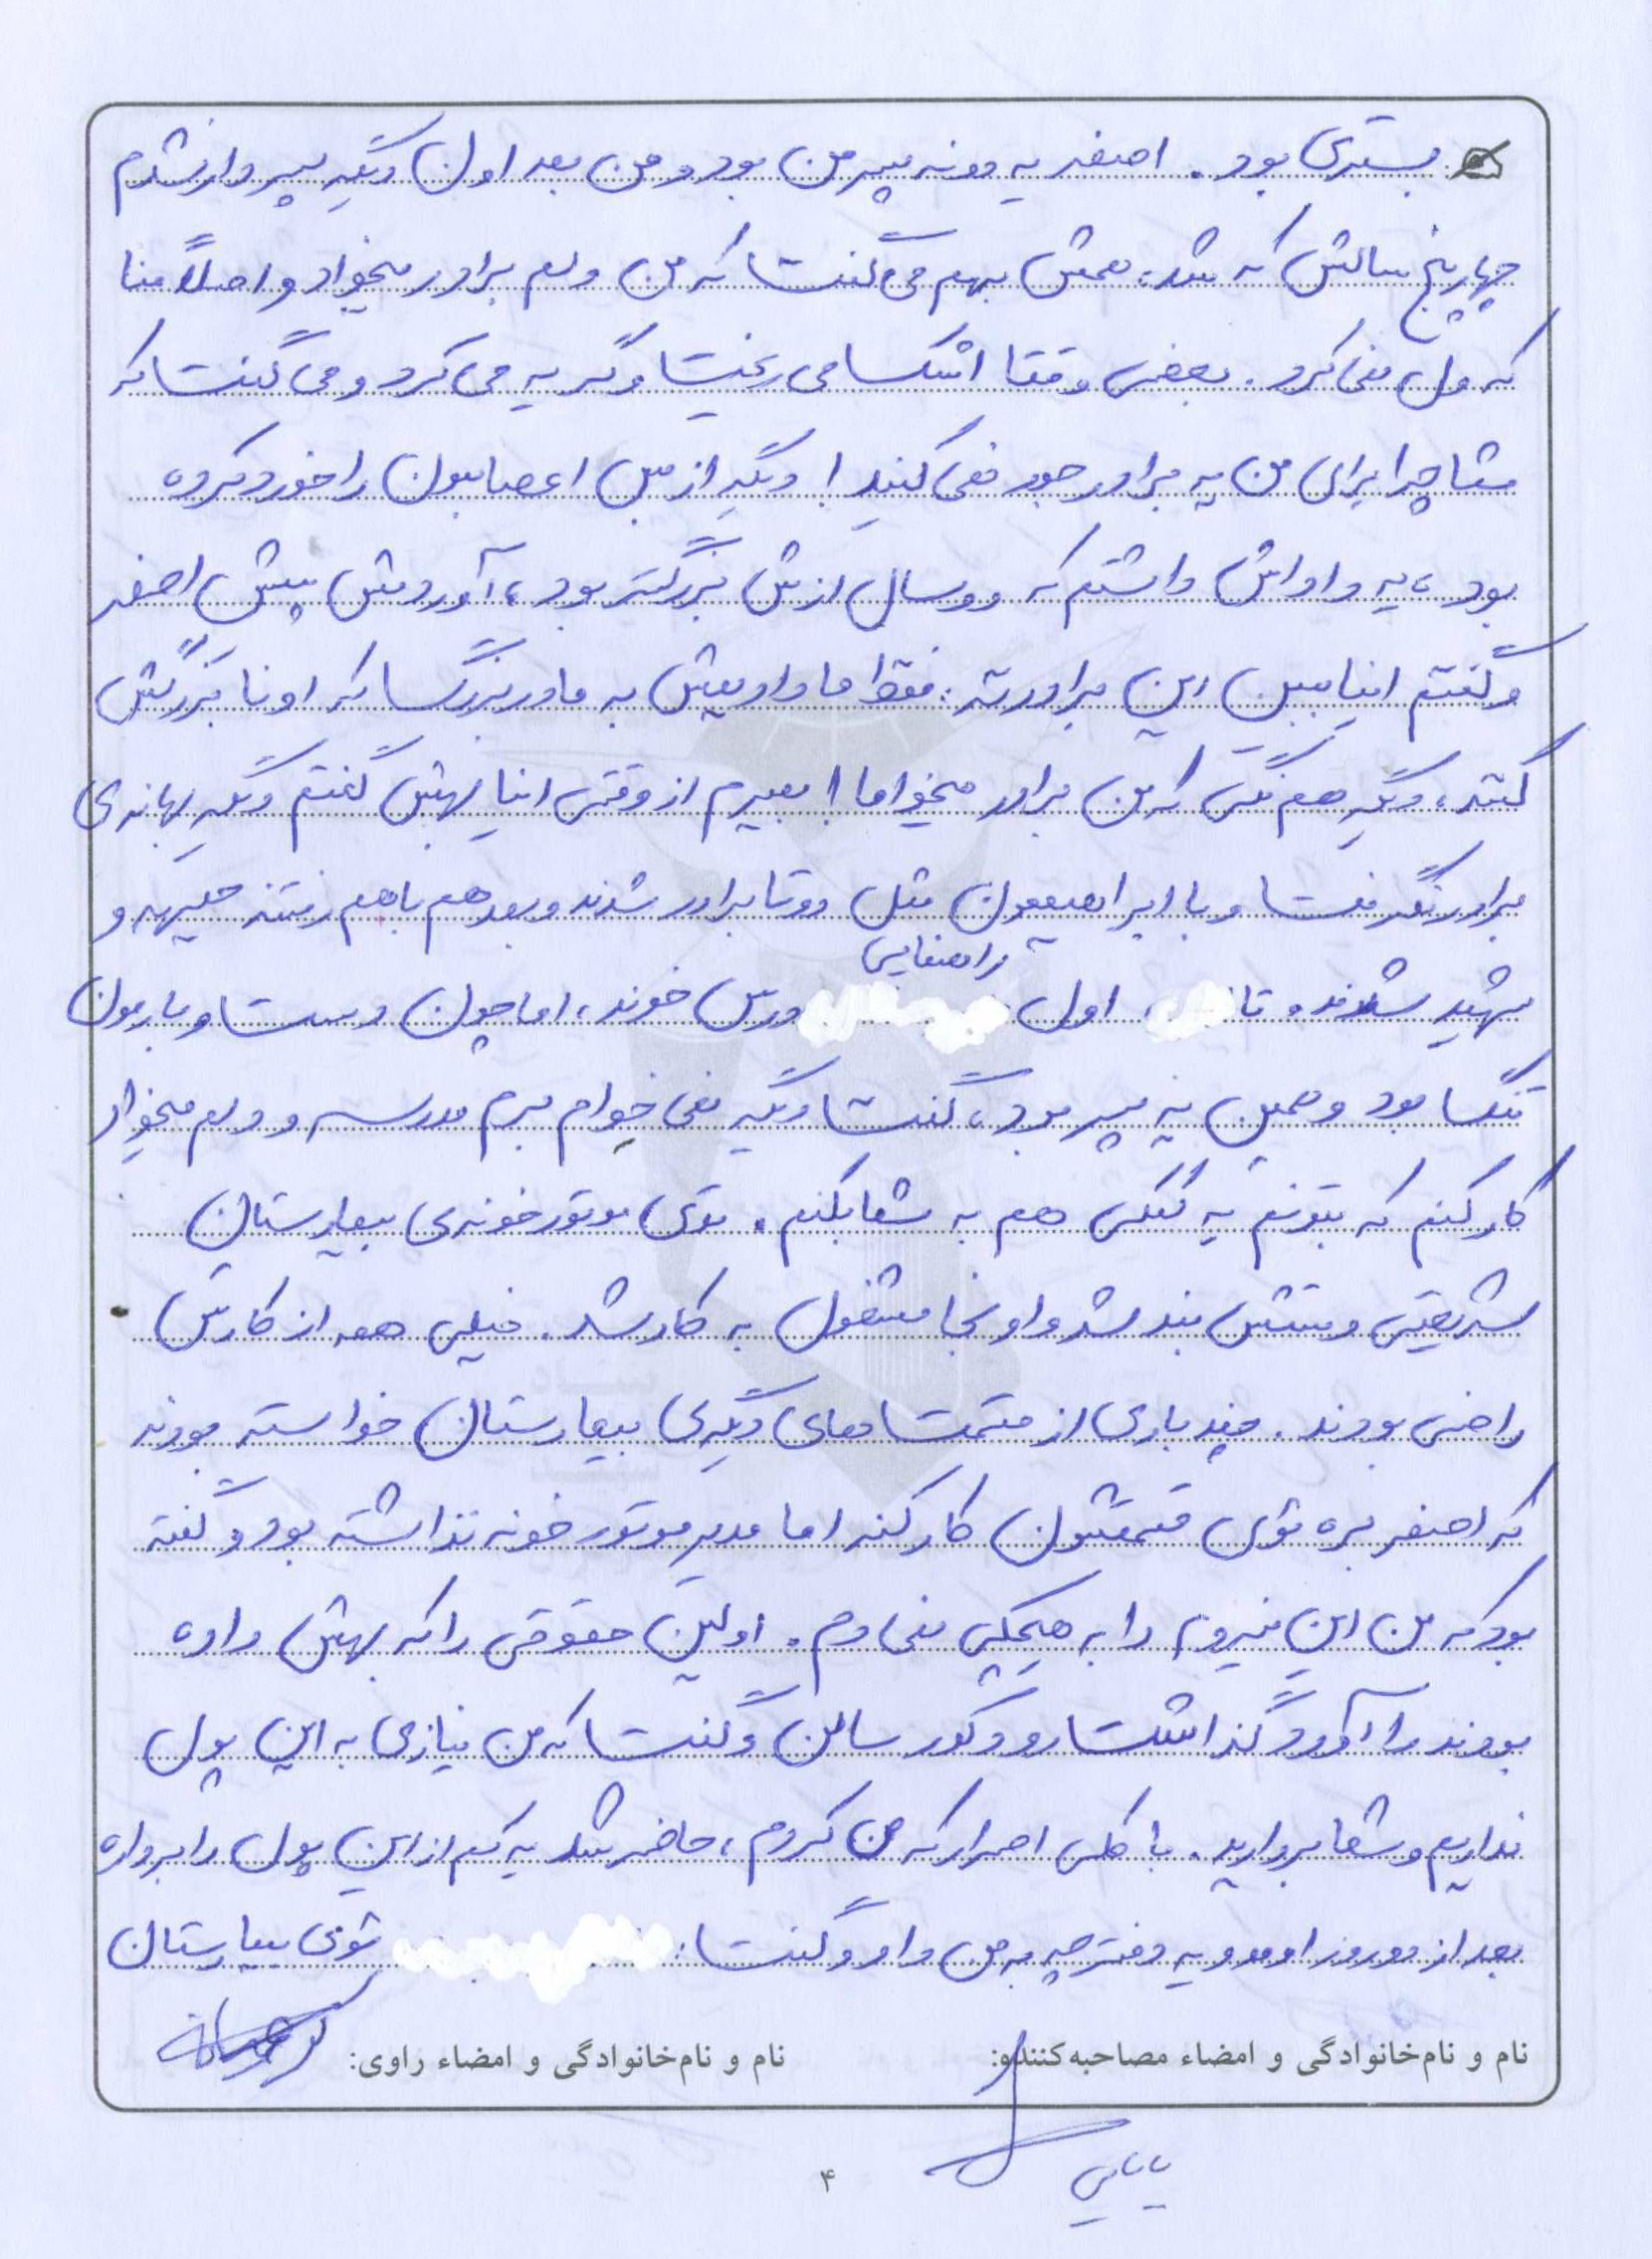 بستری بود. اصغر یه دونه پسر من بود و من بعد اون دیگه پسردار نشدم
چهار پنج سالش که شد، همش بهم می گفت که من دلم برادر میخواد و اصلاً منا
که ول نمی کرد. بعضی وقتا اشک می ریخت و گریه می کرد و می گفت که
شما چرا برای من یه برادر جور نمی کنید! دیگه از بس اعصابمون را خورد کرده
بود، یه داداش داشتم که دو سال ازش بزرگتر بود، آوردمش پیش اصغر
و گفتم اینا ببین این برادرته. فقط ما دادیمش به مادربزرگت که اونا بزرگش
کند، دیگه هم نگی که من برادر میخواما! بمیرم از وقتی اینا بهش گفتم دیگه بهانه ی
برادر نگرفت و با ابراهیممون مثل دو تا برادر شدند و بعد هم با هم رفتند جبهه و
شهید شدند. تا اول راهنمایی درس خوند، اما چون دست و بارمون
تنگ بود و همین یه پسر بود، گفت دیگه نمی خوام برم مدرسه و دلم میخواد
کار کنم که بتونم یه کمکی هم به شما بکنم. توی موتورخونه ی بیمارستان
شریعتی دستش بند شد و اونجا مشغول به کار شد. خیلی همه از کارش
راضی بودند. چند باری از قسمت های دیگه ی بیمارستان خواسته بودند
که اصغر بره توی قسمتشون کار کنه اما مدیر موتورخونه نذاشته بود و گفته
بود که من این نیروم را به هیچکی نمی دم. اولین حقوقی را که بهش داده
بودند را آورد گذاشت رو دکور سالن و گفت که من نیازی به این پول
ندارم و شما بردارید. با کلی اصرار که من کردم، حاضر شد یه کم از این پول را برداره
بعد از دو روز اومد و یه دفترچه به من داد و گفت: توی بیمارستان
نام و نام‌خانوادگی و امضاء مصاحبه‌کننده: نام و نام‌خانوادگی و امضاء راوی:
بابایی
۴